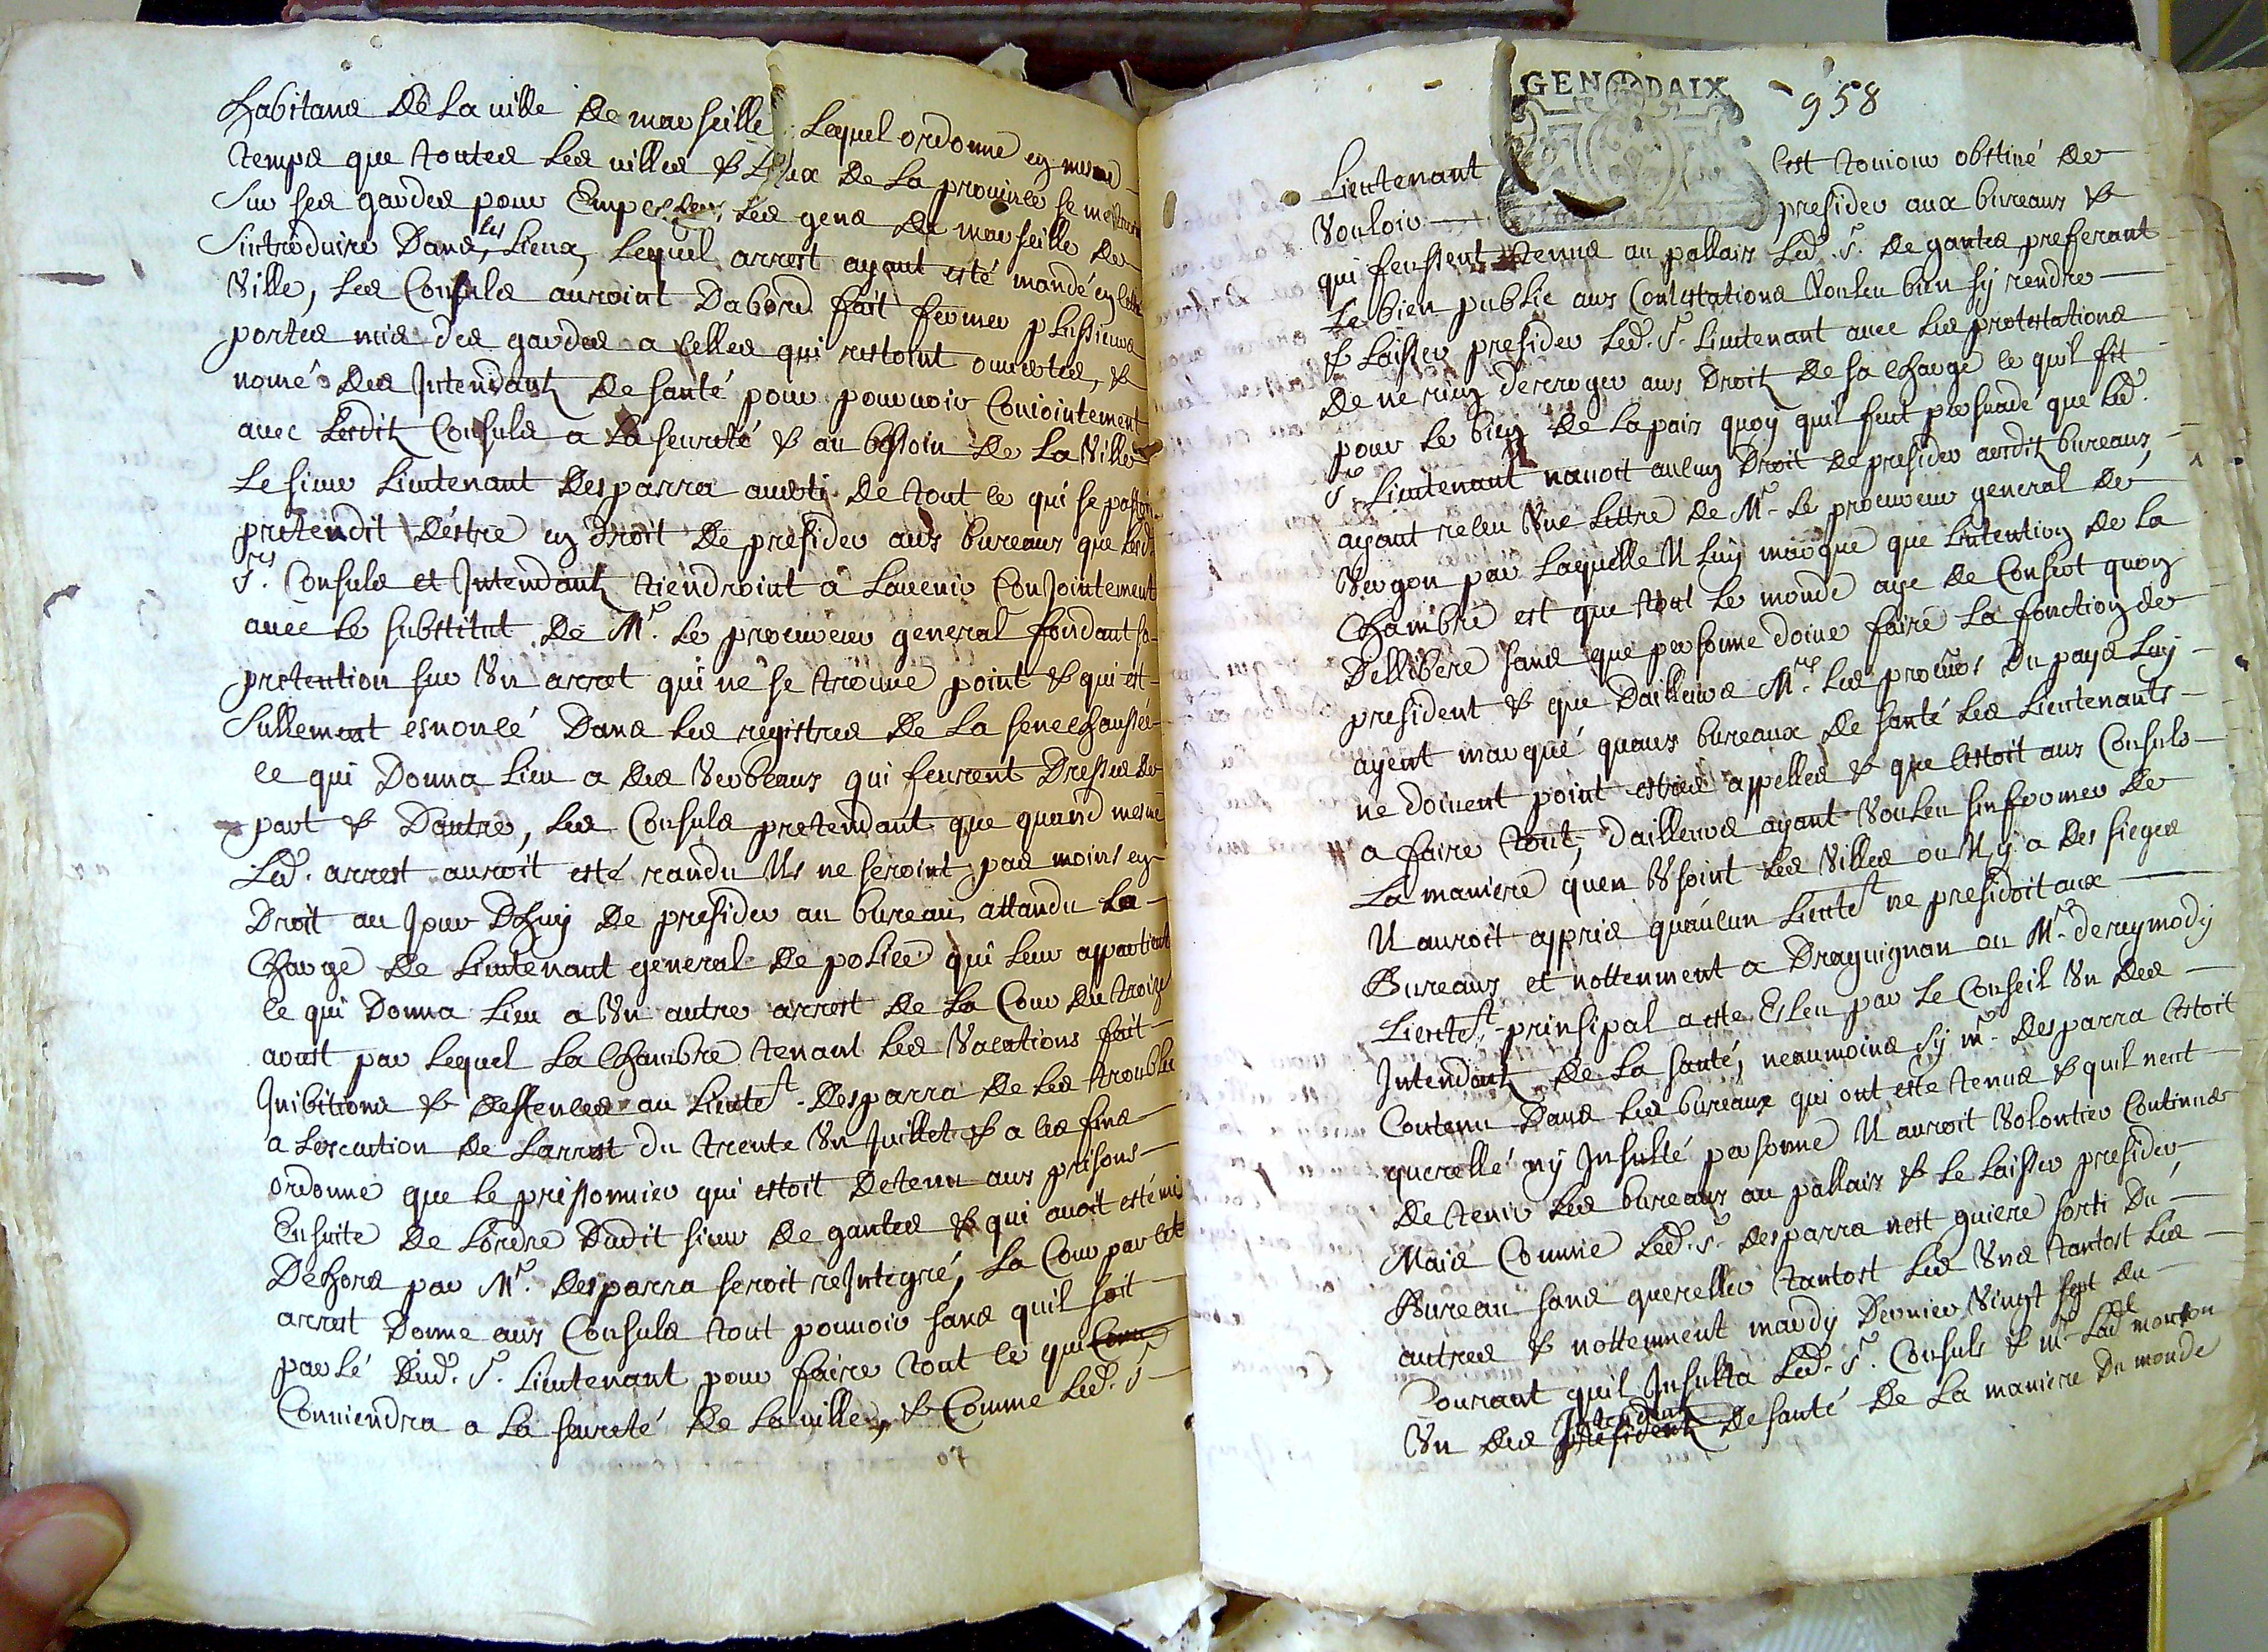 habitans de la ville de marseille, Lequel ordonne en mesme
temps que toutes les villes & lieux de la province se mettront
sur ses gardes pour Empescher les gens de marseille de
sintroduire dans les Lieux, Lequel arrest ayant esté mandé en cette
Ville, Les Consuls auroint dabord fait fermer plussieurs
portes mis des gardes a celles qui restoint ouvertes, &
nomé des Intendantz de santé pour pourvoir Coniointement
avec Lesditz Consuls a la seureté & au bessoin de la Ville
Le sieur Lieutenant desparra averti de tout ce qui se passoit
pretendit d'éstre en droit de presider aus bureaus que Lesd.
Srs. Consuls et Intendantz tiendroint a Lavenir ConJointement
avec le substitut de Mr. le procureur general fondant sa
pretention sur Un arrest qui ne se trouve point & qui est
sullement esnoncé dans les registres de la senechaussée
ce qui donna Lieu a des Verbeaus qui feurent dressés de
part & dautre, les Consuls pretendant que quand mesme
Led. arrest auroit esté randu Ils ne seroint pas moins en
droit au Jour dhuy de presider au bureau attandu La
charge de Lieutenant general de police qui leur appartient
ce qui donna Lieu a Un autre arrest de la Cour du troize
aoust par lequel la Chambre tenant les Vacations fait
Inibitions & deffences au Lieutet. desparra de les troubler
a Lexecution de Larrest du trente Un Juillet & a ces fins
ordonne que le prissonnier qui estoit detenu aus prisons
Ensuite de Lordre dudit sieur de gantes & qui avoit esté mis
dehors par Mr. desparra seroit reIntegré, La Cour par cet
arrest donne aus Consuls tout pouvoir sans quil soit
parlé dud. Sr. Lieutenant pour faire tout ce qui Conv
Conviendra a la seureté de la ville, & Comme Led. Sr
GEN DAIX
958
Lieutenant cest toujour obstiné de
Vouloir presider aux bureaus &
qui feussent tenus au pallais Led. Sr. de gantes preferant
Le bien public aus Contestations Vouleu bien sÿ rendre
& laisser presider Led. Sr. Lieutenant avec les protestations
de ne rien derroger aus droitz de sa charge ce quil fit
pour le bien de la pais quoy quil feut persuadé que Led.
Sr. Lieutenant navoit aulcun droit de presider ausditz bureaus,
ayant receu Une Lettre de Mr. le procureur general de
Vergon par Laquelle Il luy marque que Lintention de la
Chambre est que tout le monde aye de Consert quon
dellibere sans que personne doive faire la fonction de
president & que dailleurs Mrs. les procurs. du pays luy
ayent marqué quaus bureaux de santé les Lieutenants
ne doivent point estres appelles & que Cestoit aus Consuls
a faire tout, dailleurs ayant Vouleu sinformer de
La maniere quen Usoint les Villes ou Il ÿ a des sieges
Il auroit appris quaucun Lieutet ne presidoit aux
Bureaus et nottenment a Draguignan ou Mr. de raymodÿ
Lieutet. prinsipal a este Esleu par le Conseil Un des
Intendantz de la santé, neaumoins sÿ mr. desparra Cestoit
Contenu dans les bureaux qui ont este tenus & quil neut
querellé nÿ Insulté personne Il auroit Volontier Continué
de tenir les bureaus au pallais & le laisser presider
Mais Comme Led. Sr. desparra nest guiere sorti du
Bureau sans quereller tantost les Uns tantost les
autres & nottenment mardy dernier Vingt sept du
Courant quil Insulta Led. Sr. Consuls & mr.
Un des Intendantz de santé de la maniere du monde